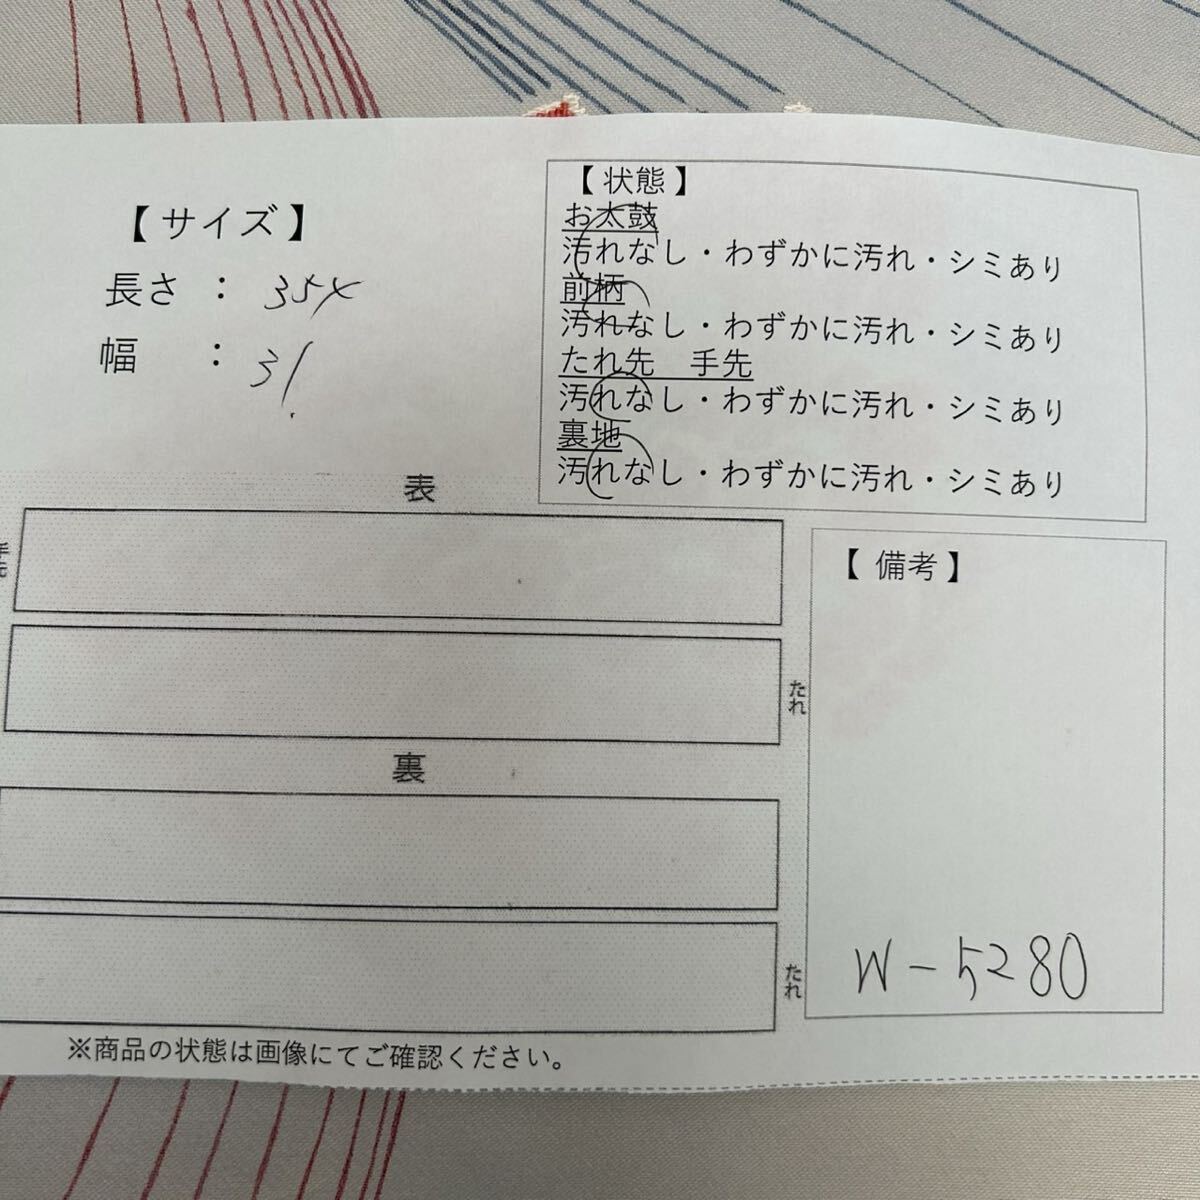 【 サイズ 】
長さ ： 354
幅 ： 31.
【 状態 】
お太鼓
汚れなし・わずかに汚れ・シミあり
前柄
汚れなし・わずかに汚れ・シミあり
たれ先 手先
汚れなし・わずかに汚れ・シミあり
裏地
汚れなし・わずかに汚れ・シミあり
表
手先
たれ
裏
たれ
【 備考 】
W-5280
※商品の状態は画像にてご確認ください。